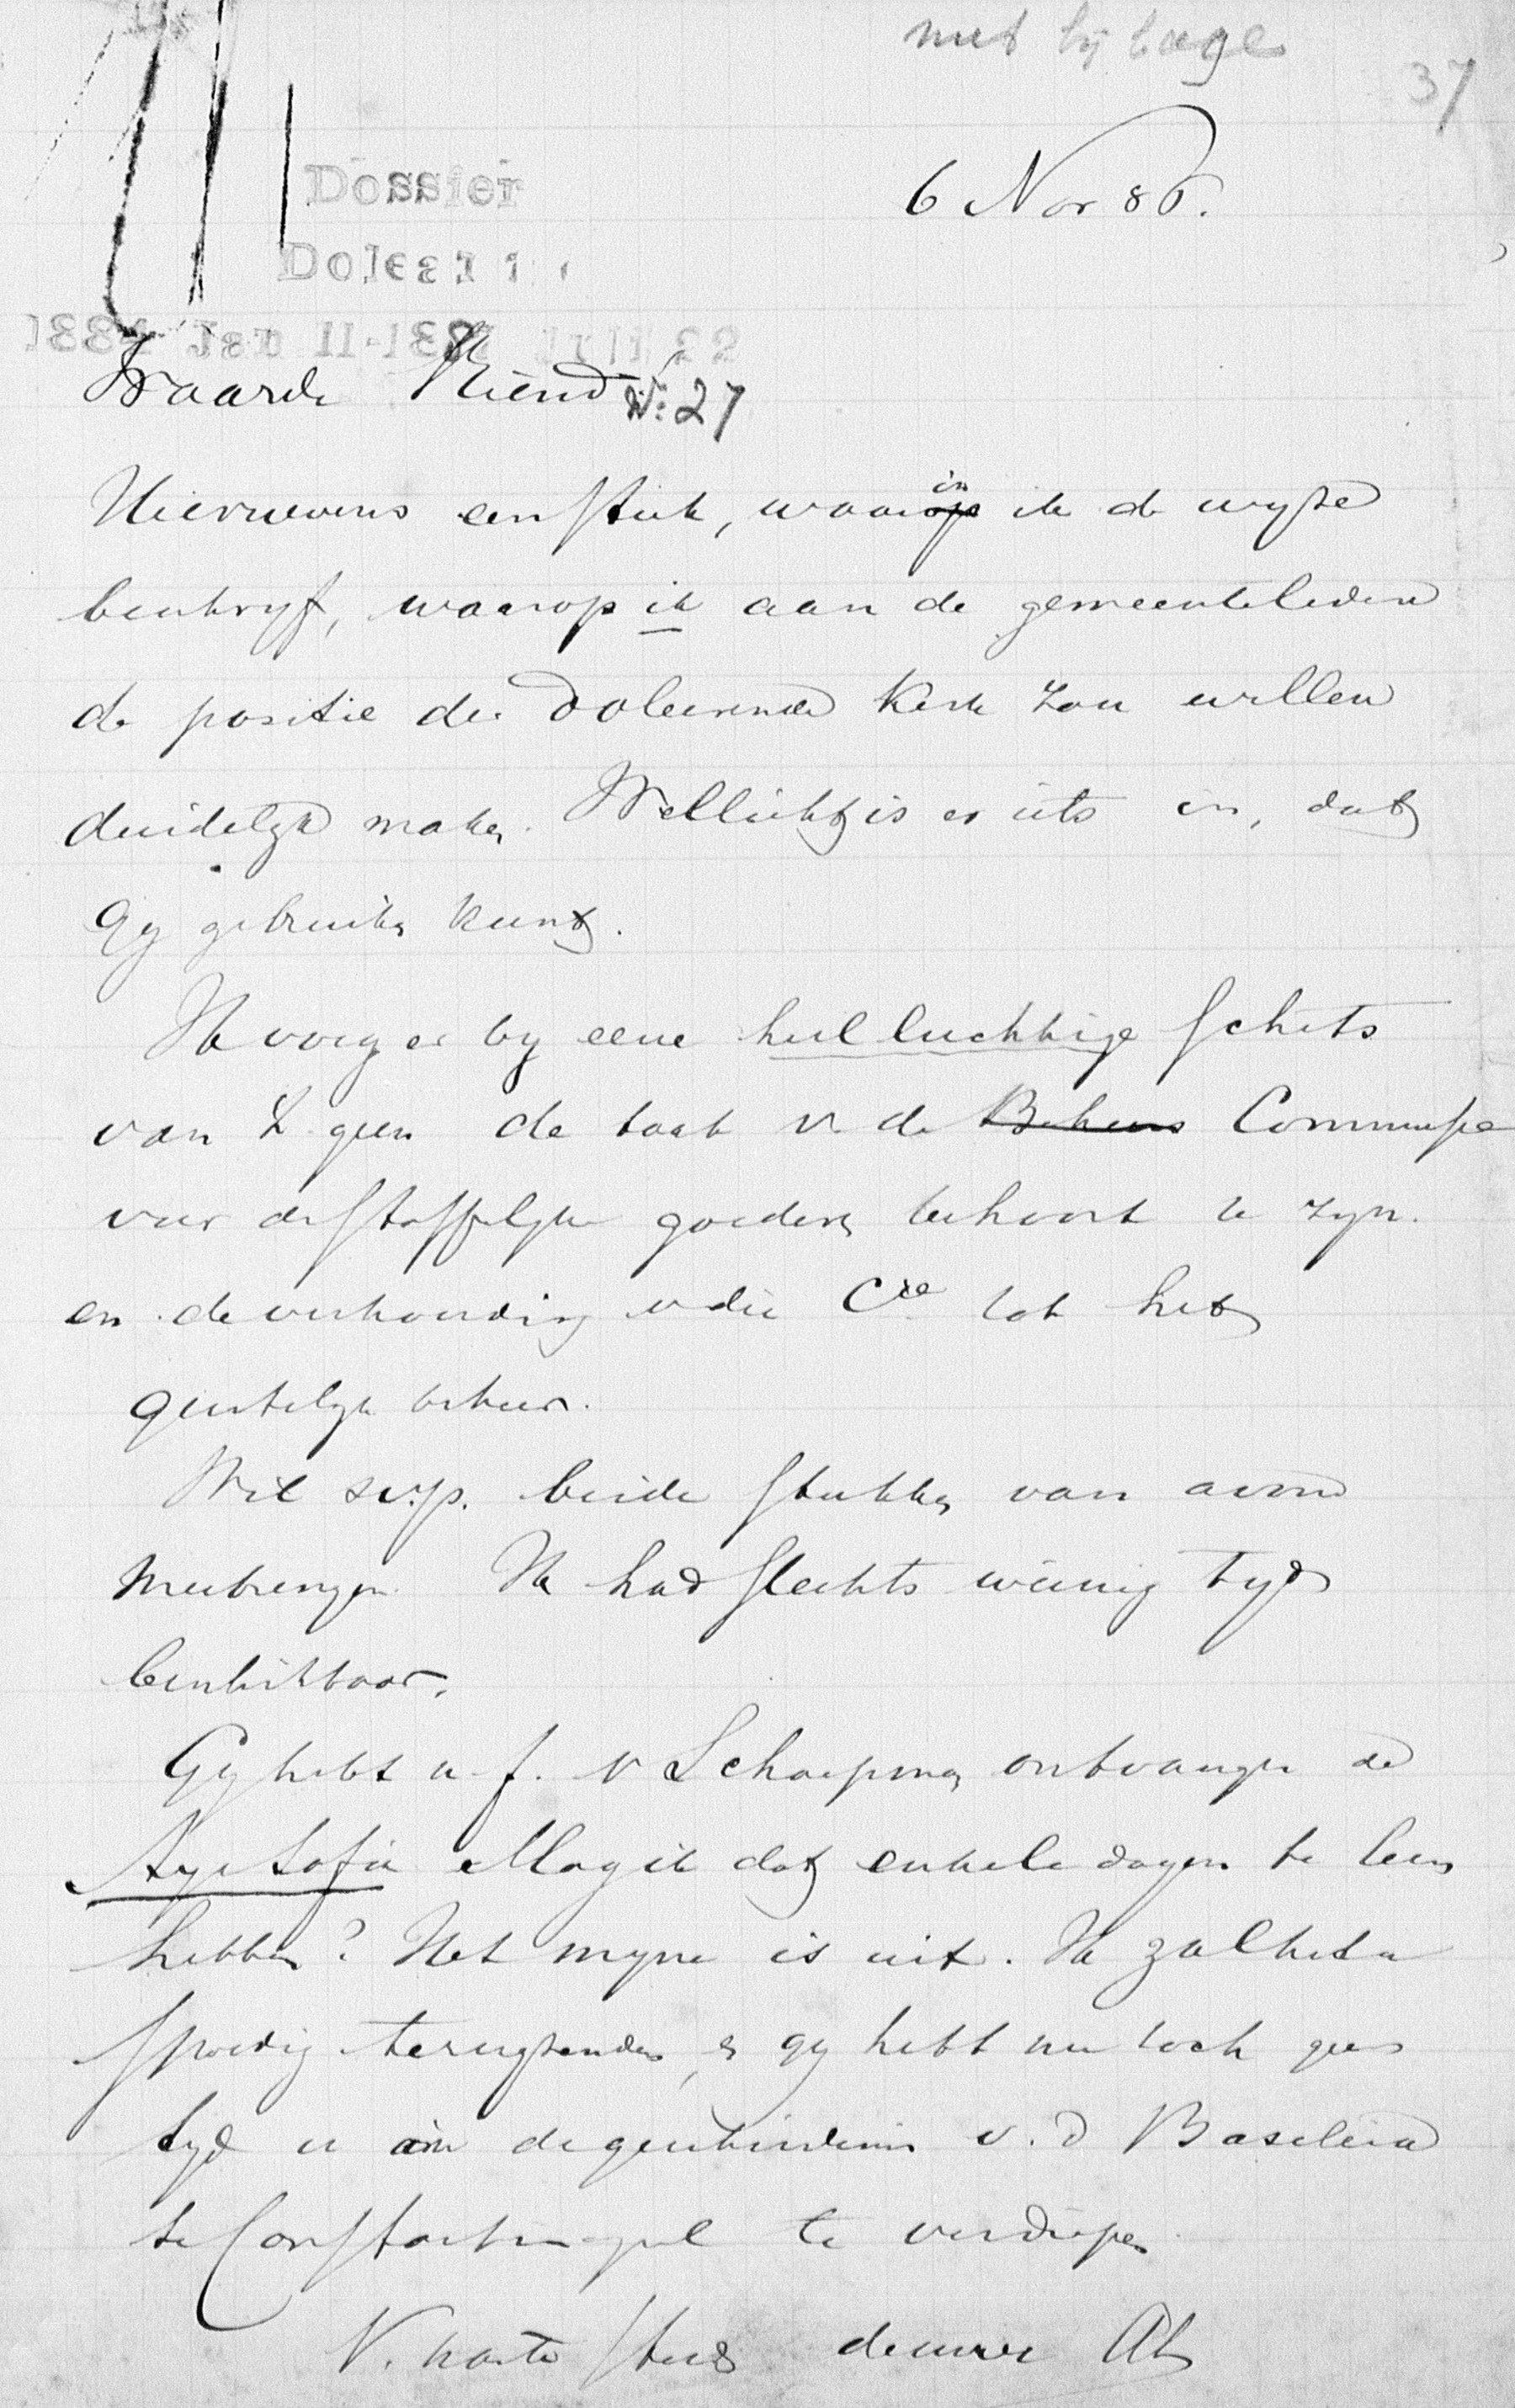 met bijlage
37
6 Nov 86.
Dossier
Doleantie
Waarde Vriend
No: 27
Hiernevens een stuk, waarin op ik de wyze
beschryf, waarop ik aan de gemeenteleden
de positie der Doleerende Kerk zou willen
duidelyk maken. Wellicht is er iets in, dat
Gy gebruiken kunt.
Ik voeg er by eene heel luchtige schets
van 't geen de taak v. de Beheers Commissie
voor de stoffelyke goederen behoort te zyn.
en de verhouding v die Cie tot het
geestelyk beheer.
Wil s.v.p. beide stukken van avond
meebrengen. Ik had slechts weinig tyd
beschikbaar.
Gy hebt v Schaepman ontvangen de
Aya Sofia Mag ik dat enkele dagen te leen
hebben? Het myne is uit. Ik zal het u
spoedig terugzenden, en gy hebt nu toch geen
tyd u in de geschiedenis v. d Basileia
te Constantinopel te verdiepen
N. harte steeds de uwe